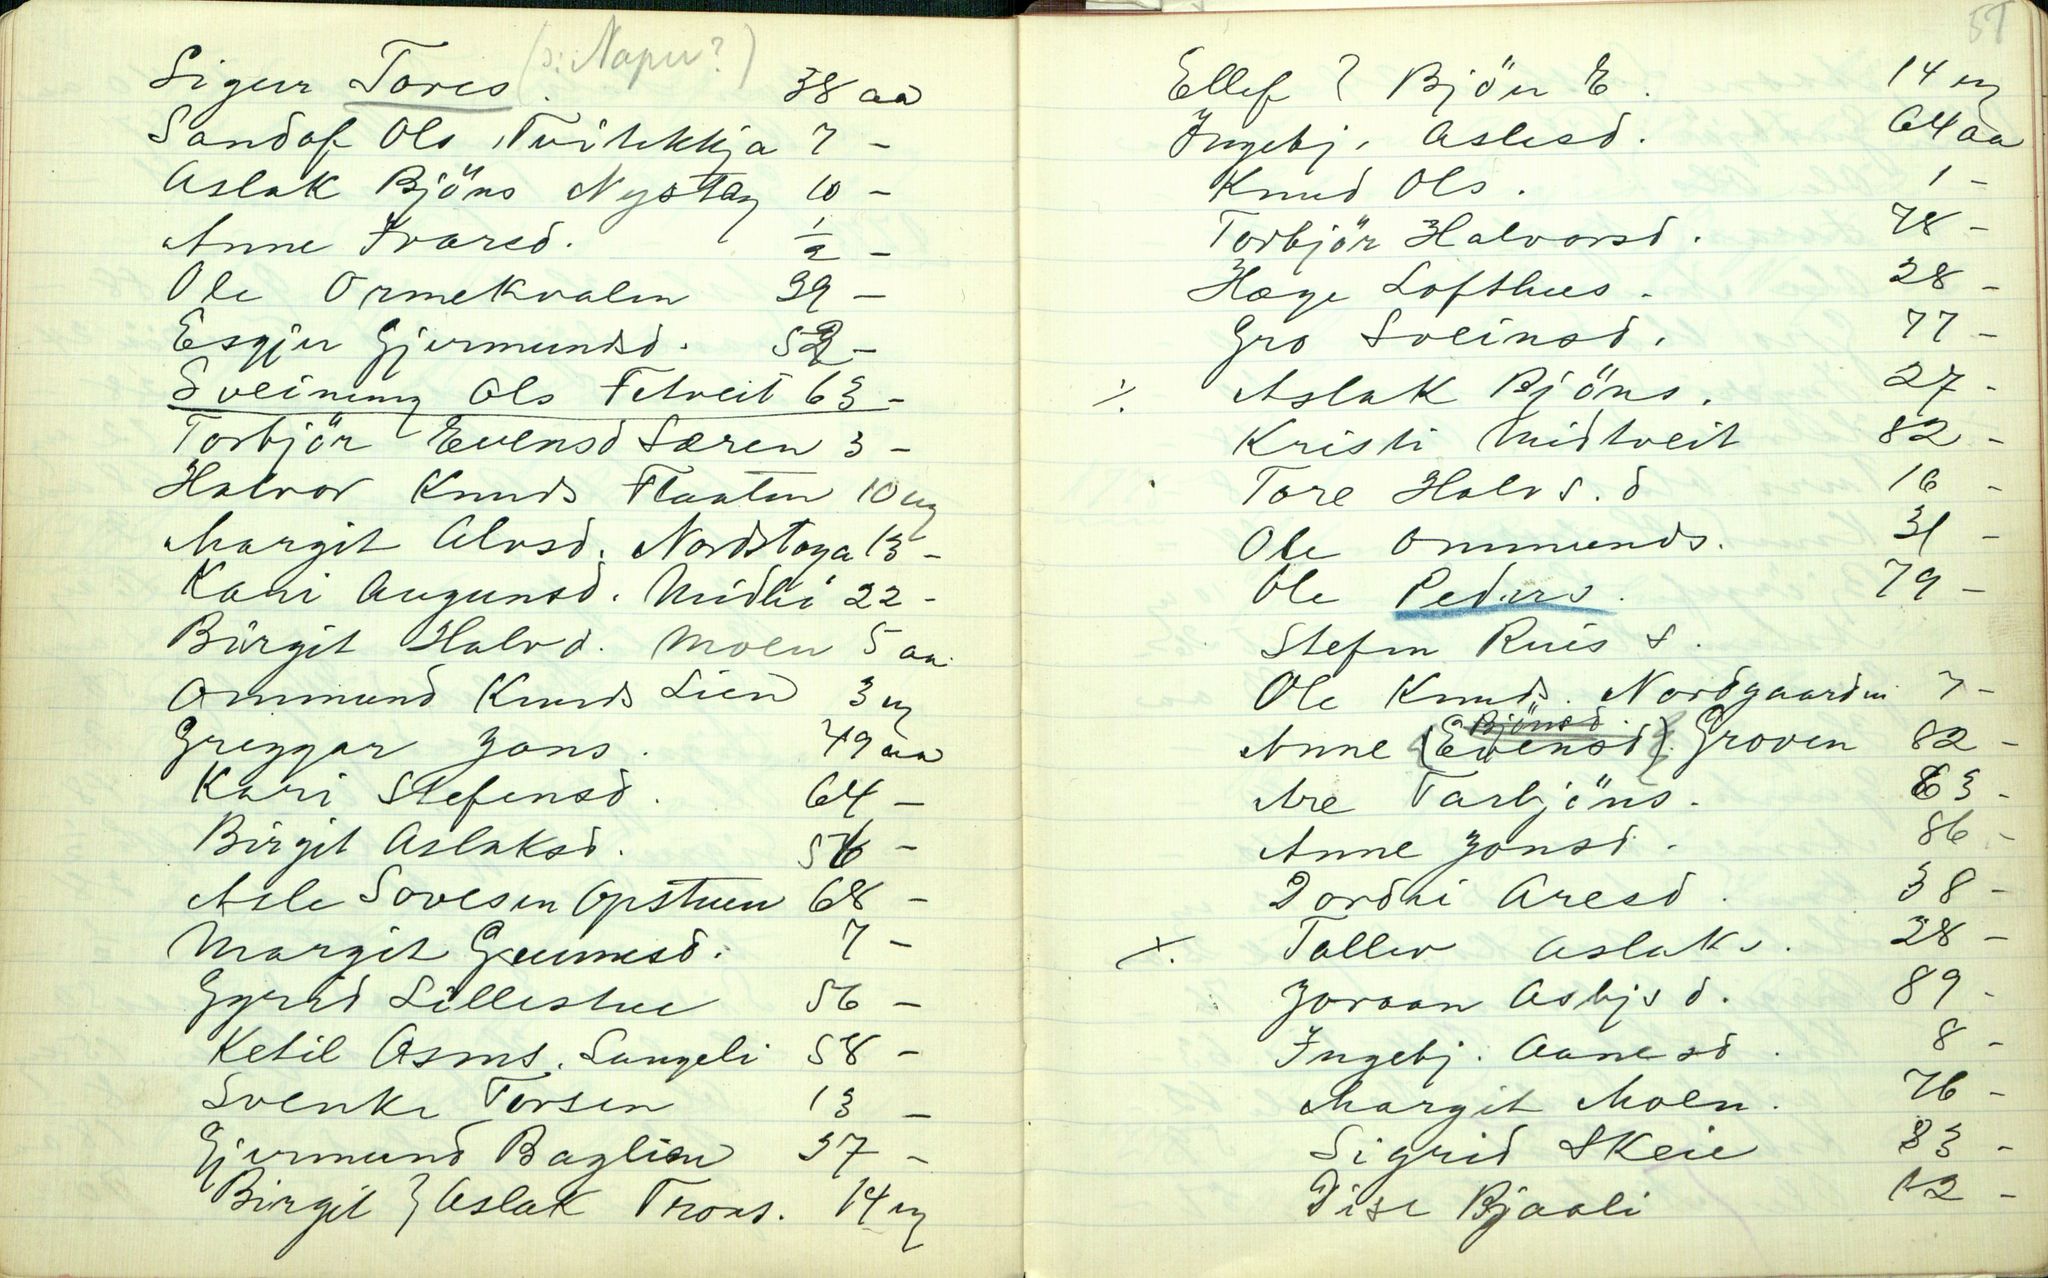 Sigur Tores (ɔ: Naper?) 38 aa
Sandof Ols Tvitekkja 7 –
Aslak Bjöns Nystøg 10 –
Anne Ivarsd. ½ –
Ole Ormekvalen 39 –
Esgjer Gjermundsd. 52 –
Sveinung Ols Fetveit 63 –
Torbjör Evensd Særen 3 –
Halvor Knuds Flaaten 10 ug
Margit Alvsd. Nordstoga 13 –
Kari Augunsd. Midli 22 –
Birgit Halvd. Moen 5 aa
Ommund Knuds Lien 3 ug
Greggar Jons. 49 aa
Kari Stefensd. 64 –
Birgit Aslaksd. 56 –
Asle Sovesen Opstuen 68 –
Margit Gunnesd. 7 –
Gyrid Lillestue 56 –
Ketil Asms. Langeli 58 –
Svenke Torsen 13 –
Gjermund Baglien 37 –
Birgit } Aslak Trons. 14 ug
51
Ellef } Bjön E. 14 ug
Ingebj. Aslesd. 64 aa
Knud Ols. 1 –
Torbjör Halvorsd. 78 –
Hæge Lofthus. 28 –
Gro Sveinsd. 77 –
Aslak Bjöns. 27 –
Kristi Midtveit 82 –
Tore Halvs.d 16 –
Ole Ommunds. 31 –
Ole Peders. 79 –
Stefen Ruis s.
Ole Knuds. Nordgaarden 7 –
Bjönsd.
Anne (Evensd). Groven 82 –
Are Tarbjöns. 63 –
Anne Jonsd. 86 –
Dordei Aresd. 38 –
X. Tallev Aslaks. 28 –
Joraan Asbjsd. 89 –
Ingebj. Aanesd. 8 –
Margit Moen. 76 –
Sigrid Skeie 83 –
Dise Bjaali 12 –